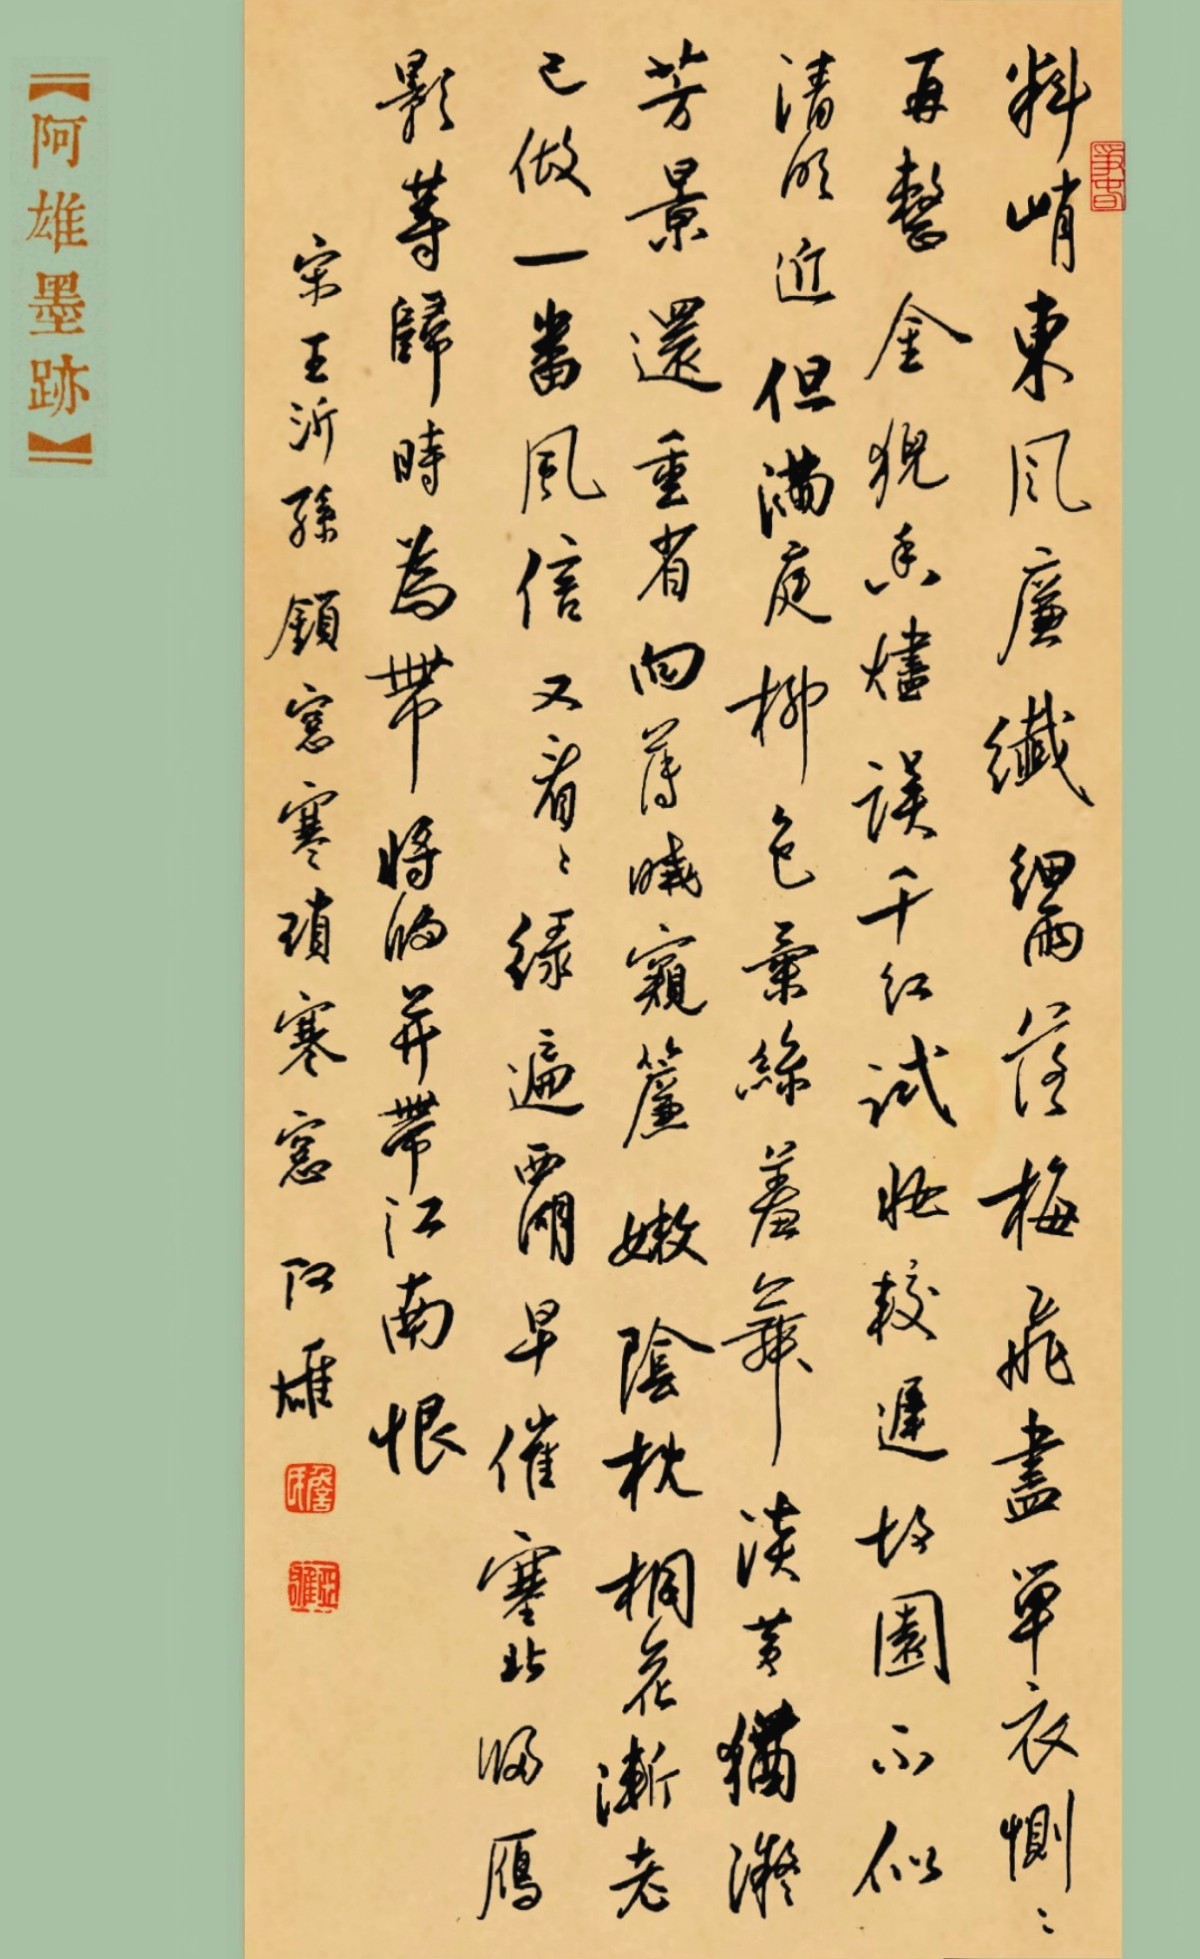 料峭東風廉纖細雨落梅飛盡單衣惻〻
再整金猊香燼誤千紅試妝較遲故園不似
清明近但滿庭柳色柔絲羞舞淡黃猶凝
芳景還重省向薄曉窺簾嫩陰枕桐花漸老
已做一番風信又看〻綠遍西湖早催塞北歸雁
影等歸時為帶將歸并帶江南恨
宋王沂孫鎖窓寒瑣寒窓 阿雄
【阿雄墨跡】